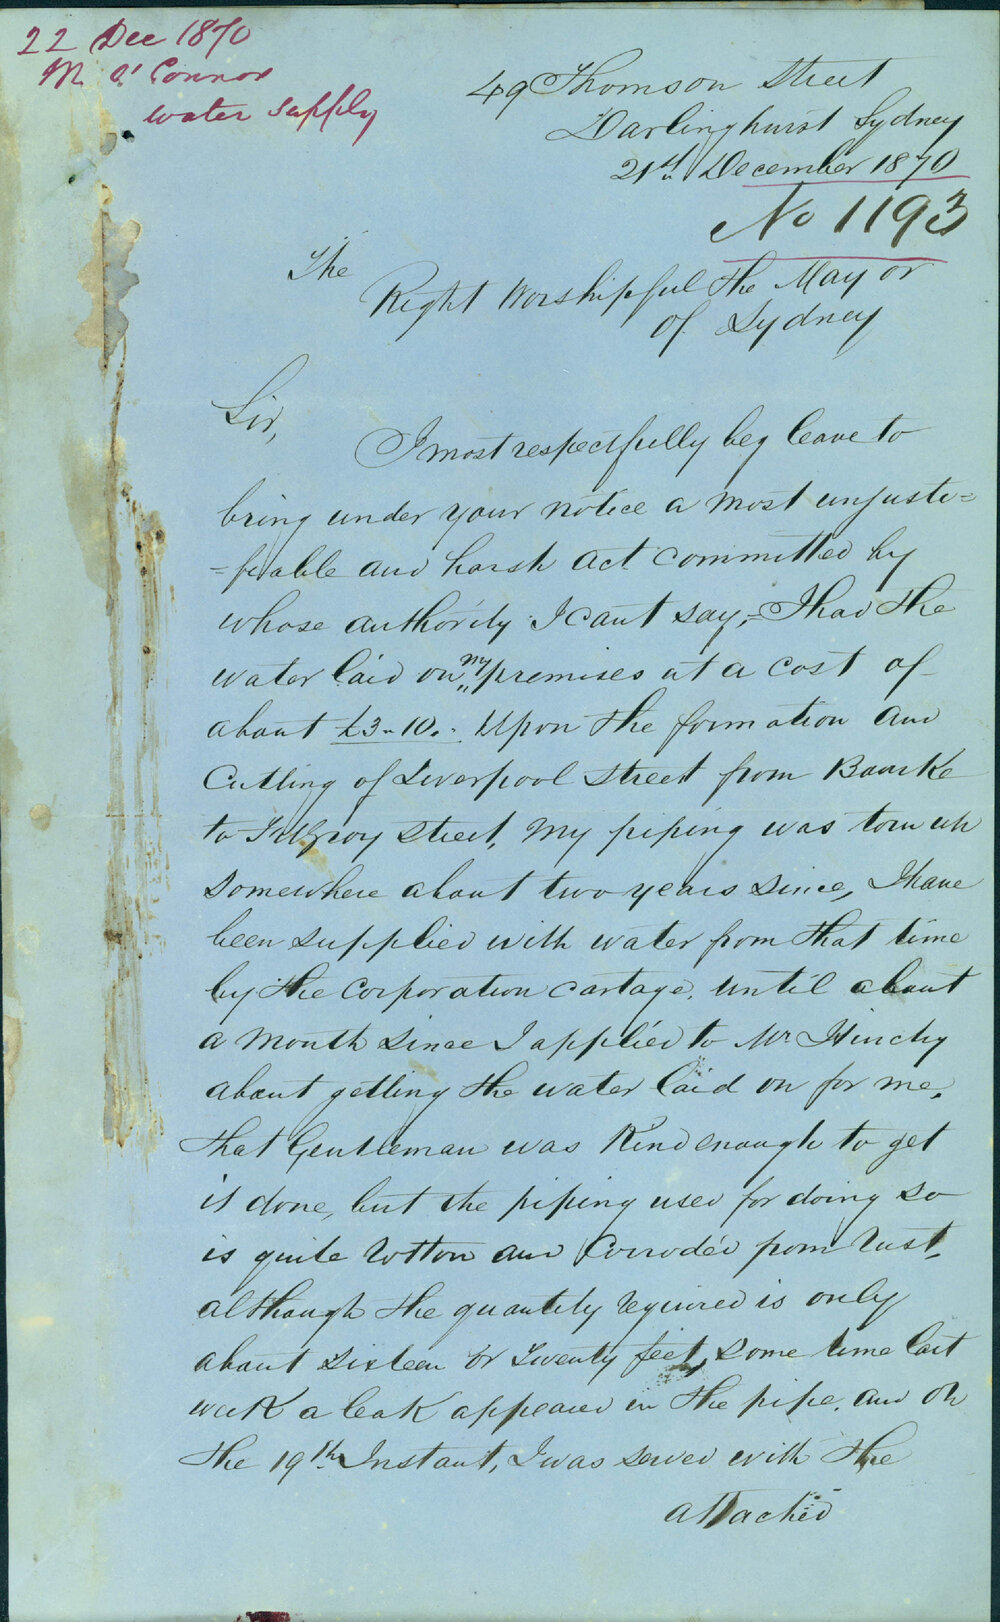 22 Dec 1870
M O'Connor
water supply
49 Thomson Street
Darlinghurst Sydney
21st December 1870
No 1193
The
Right Worshipful the Mayor
of Sydney
Sir,
I most respectfully beg leave to
bring under your notice a most unjusti=
=fiable and harsh act committed by
whose authority I cant say,= I had the
water laid on my premises at a cost of
about £3-10.- Upon the formation and
Cutting of Liverpool Street from Bourke
to Fitzroy Street, My piping was torn up
Somewhere about two years since, I have
been supplied with water from that time
by the Corporation Cartage, until about
a Month since I applied to Mr Hinchy
about getting the water laid on for me,
that Gentleman was Kind enough to get
it done, but the piping used for doing so
is quite Rotton and Corroded from Rust,
although the quantity required is only
about Sixteen or Twenty feet, Some time last
week a leak appeared in the pipe, and on
the 19th Instant, I was served with the
attached